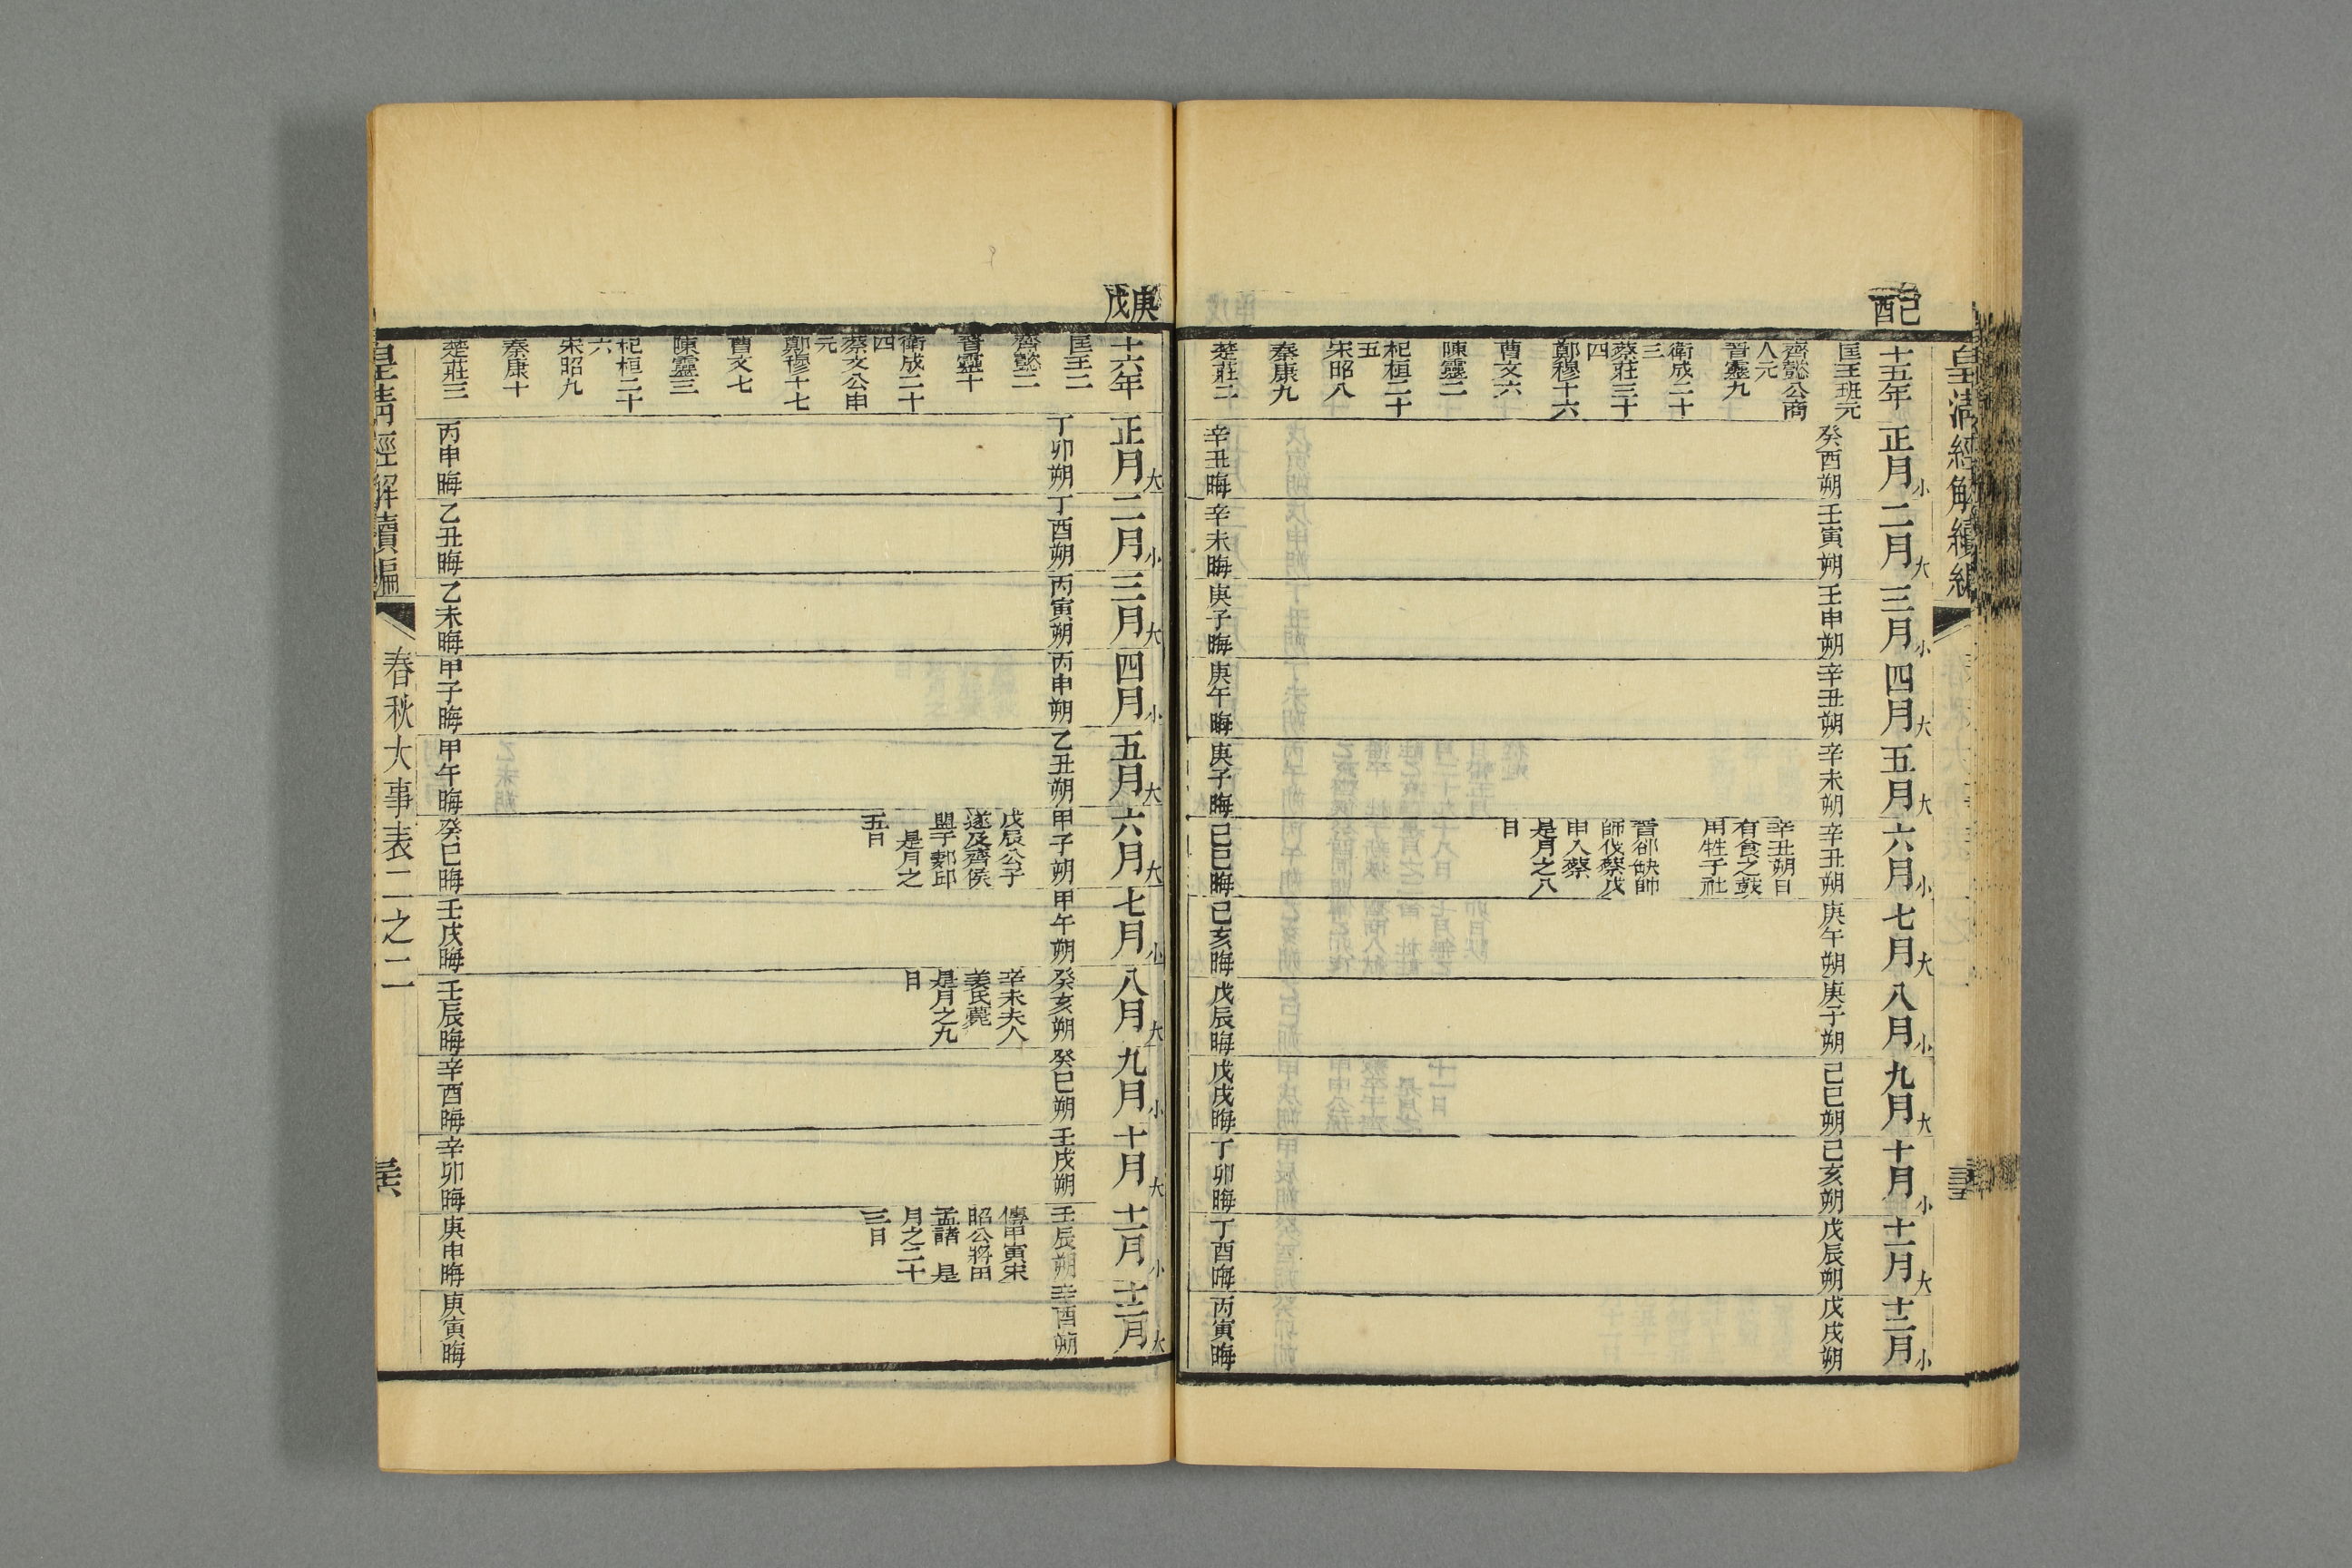 皇清經解續編
己酉
十五年
正月小
二月大
三月小
四月大
五月大
六月小
七月大
八月小
九月大
十月小
十一月大
十二月小
匡王班元
癸酉朔
壬寅朔
壬申朔
辛丑朔
辛未朔
辛丑朔
庚午朔
庚子朔
己巳朔
己亥朔
戊辰朔
戊戌朔
齊懿公商
人元
晉靈九
衛成二十
三
蔡莊三十
四
鄭穆十六
曹文六
陳靈二
杞桓二十
五
宋昭八
秦康九
楚莊二
辛丑朔日
有食之鼓
用牲于社
晉郤缺帥
師伐蔡戊
申入蔡
是月之八
日
辛丑晦
辛未晦
庚子晦
庚午晦
庚子晦
己巳晦
己亥晦
戊辰晦
戊戌晦
丁卯晦
丁酉晦
丙寅晦
庚戌
十六年
正月大
二月小
三月大
四月小
五月大
六月大
七月小
八月大
九月小
十月大
十一月小
十二月大
匡王二
丁卯朔
丁酉朔
丙寅朔
丙申朔
乙丑朔
甲子朔
甲午朔
癸亥朔
癸巳朔
壬戌朔
壬辰朔
辛酉朔
齊懿二
晉靈十
衛成二十
四
蔡文公申
元
鄭穆十七
曹文七
陳靈三
杞桓二十
六
宋昭九
秦康十
楚莊三
戊辰公子
遂及齊侯
盟于郪邱
是月之
五日
辛未夫人
姜氏薨
是月之九
日
傳甲寅宋
昭公將田
孟諸 是
月之二十
三日
丙申晦
乙丑晦
乙未晦
甲子晦
甲午晦
癸巳晦
壬戌晦
壬辰晦
辛酉晦
辛卯晦
庚申晦
庚寅晦
皇清經解續編
春秋大事表二之二